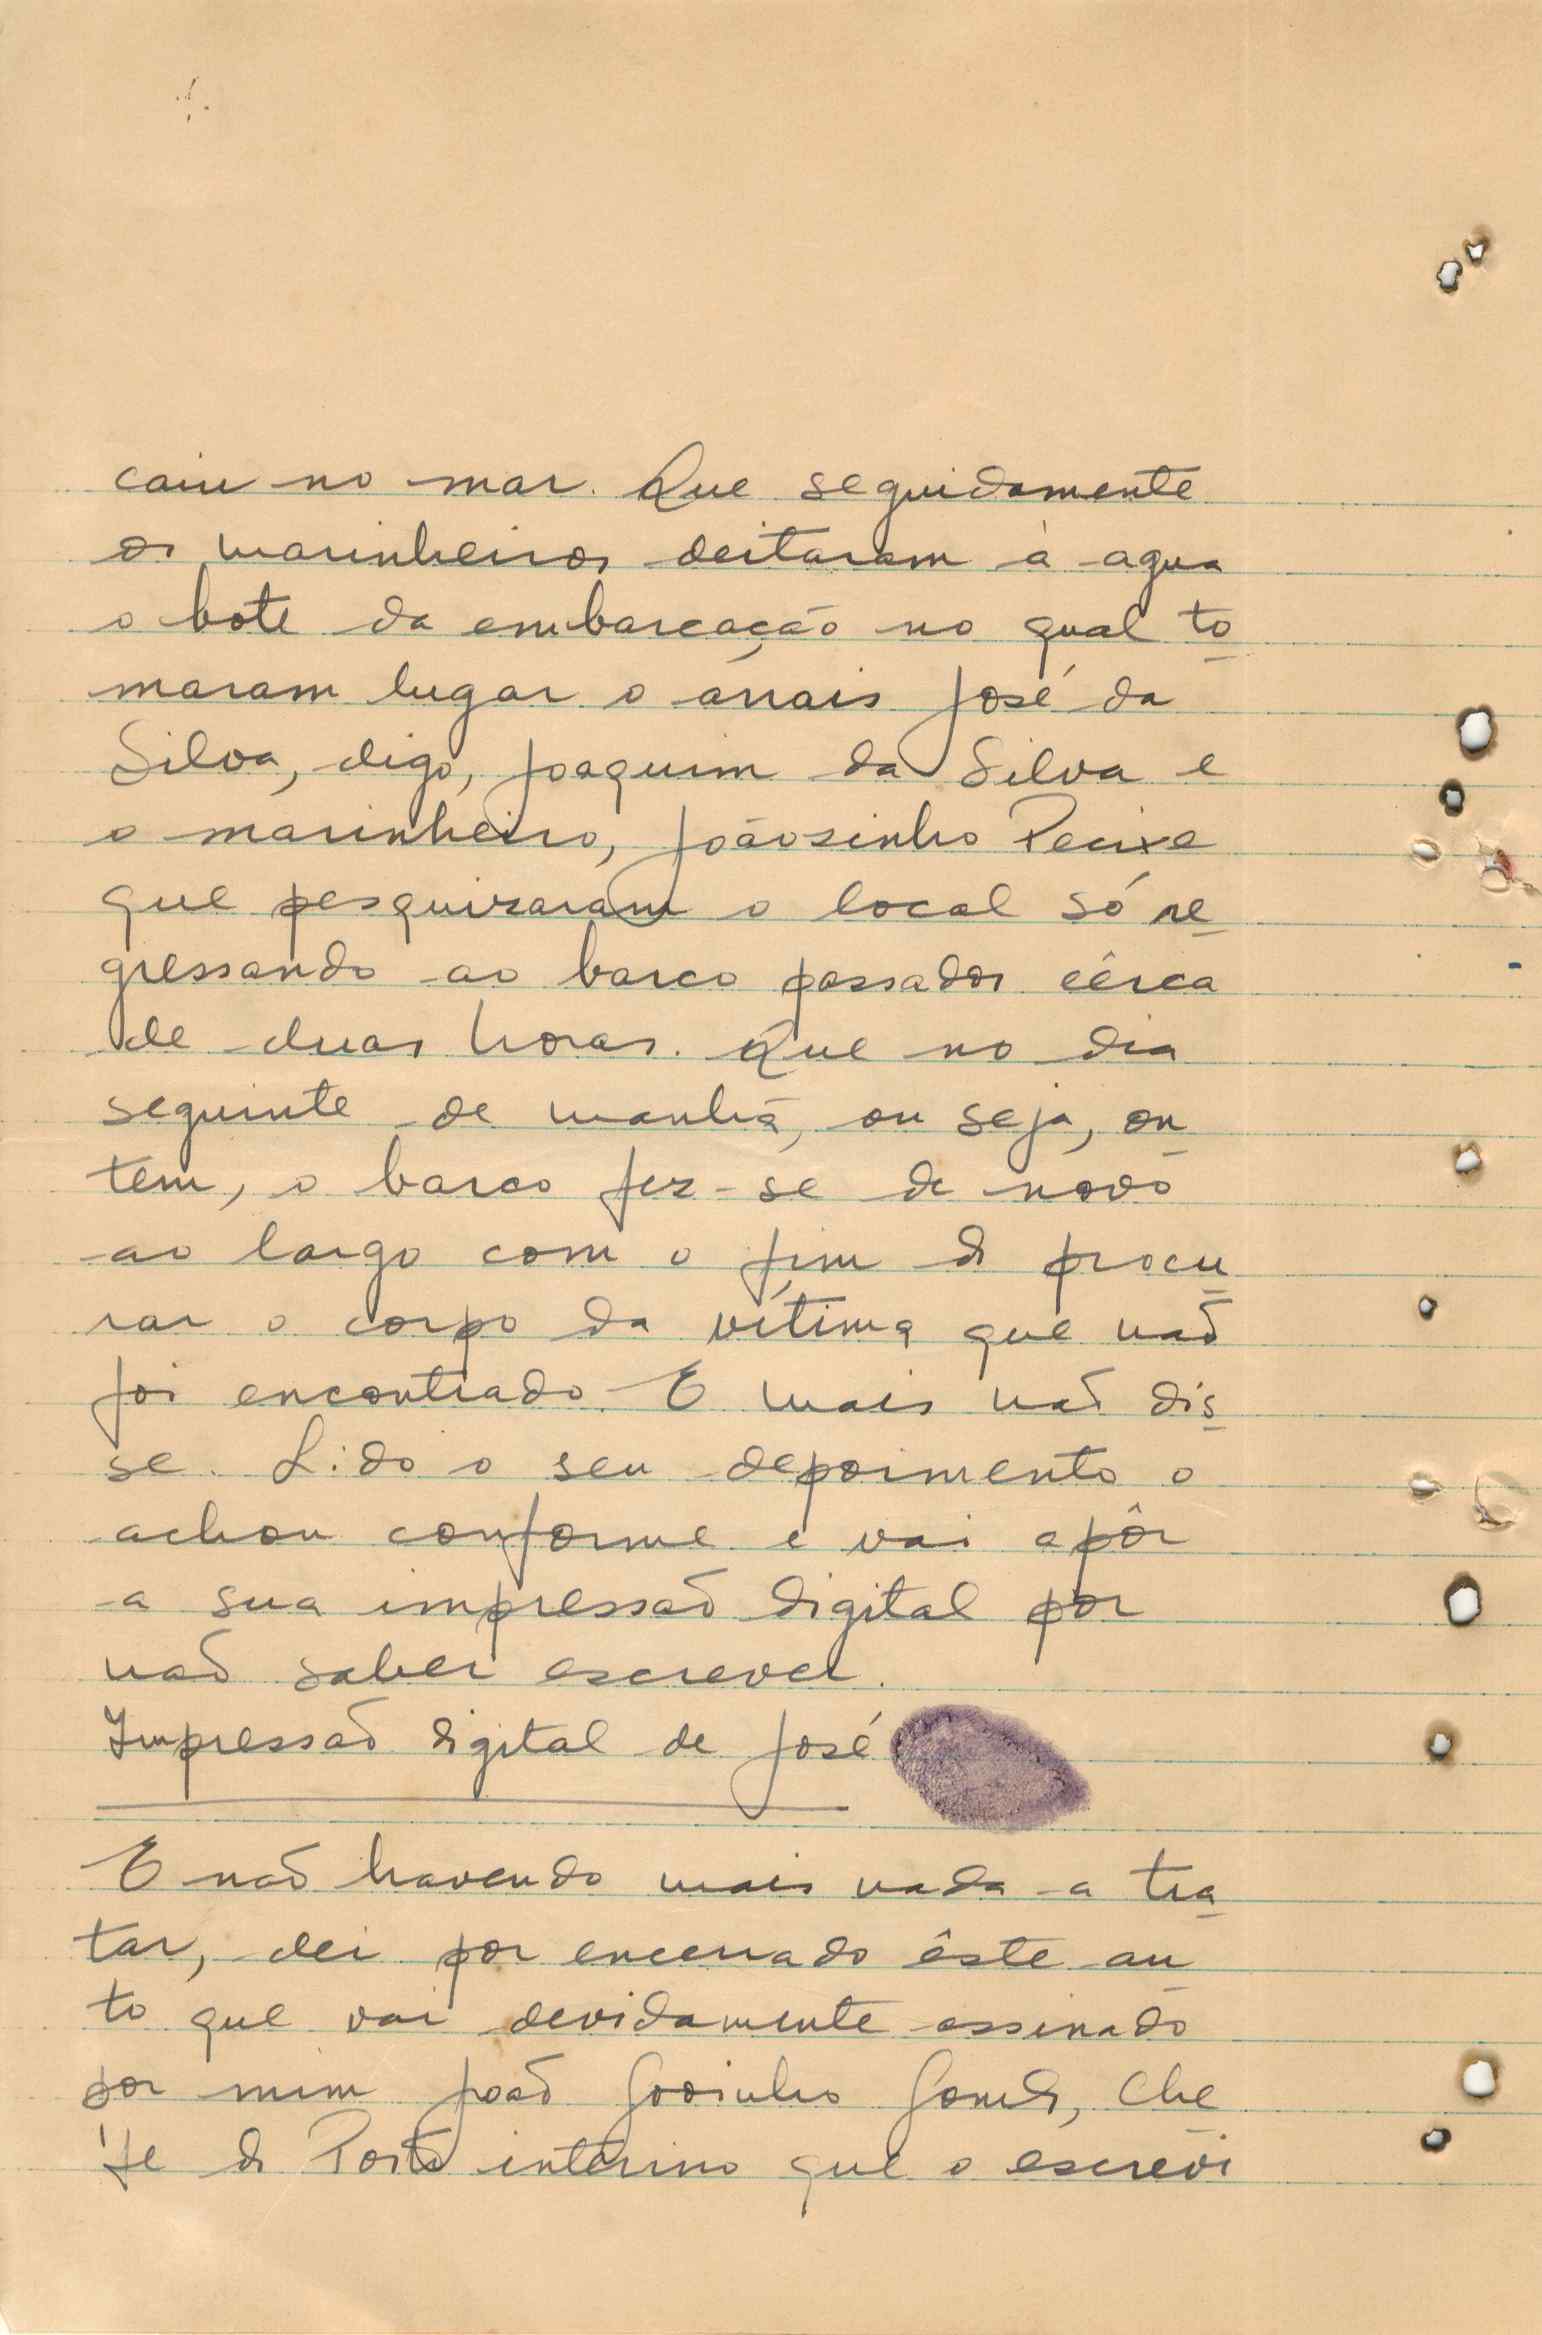 caiu no mar. Que seguidamente
os marinheiros deitaram à agua
o bote da embarcação no qual to
maram lugar o arrais José da
Silva, digo, Joaquim da Silva e
o marinheiro, Joãosinho Peixe
que pesquizaram o local só re
gressando ao barco passados cêrca
de duas horas. Que no dia
seguinte de manhã, ou seja, on
tem, o barco fez-se de novo
ao largo com o fim de procu
rar o corpo da vítima que não
foi encontrado. E mais não dis
se. Lido o seu depoimento o
achou conforme e vai apôr
a sua impressão digital por
não saber escrever.
Impressão digital de José
E não havendo mais nada a tra
tar, dei por encerrado êste au
to que vai devidamente assinado
por mim João Godinho Gomes, Che
fe de Posto interino que o escrevi